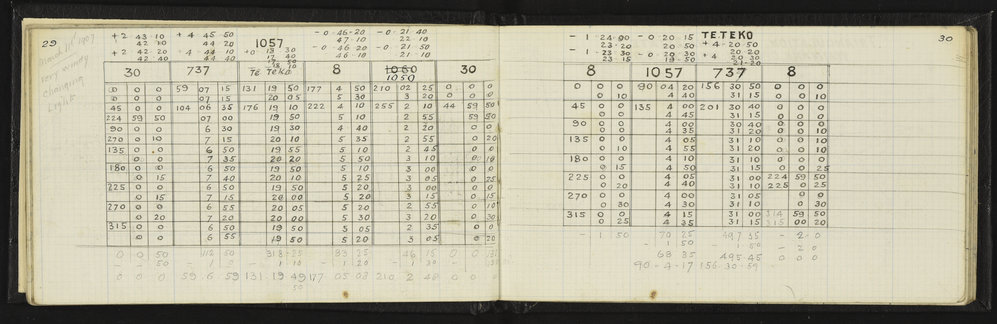 29
March 1st 1907
Very windy
changing
Light
+ 2 43 10 + 4 45 50 - 0 46 20 - 0 21 40
42 10 44 20 1057 47 10 22 10
+ 2 42 20 + 4 44 10 + 0 13 30 - 0 46 20 - 0 21 50
42 40 44 40 46 10 21 10
30 737 Te Teko 8 1060 30
1050
0 0 0 59 07 15 131 19 50 177 4 50 210 02 25 0 0 0
0 0 0 07 15 20 05 5 30 3 20 0 0 0
45 0 0 104 06 35 176 19 10 222 4 10 255 2 10 44 59 50
224 59 50 07 00 19 50 5 10 2 55 59 50
90 0 0 6 30 19 30 4 40 2 20 0 0
270 0 10 7 15 20 10 5 35 2 55 0 20
135 0 0 6 50 19 55 5 10 2 45 0 0
0 0 7 35 20 20 5 50 3 10 0 10
180 0 0 6 50 19 50 5 10 3 00 0 0
0 15 7 40 20 10 5 25 3 05 0 25
225 0 0 6 50 19 50 5 20 3 00 0 0
0 15 7 15 20 00 5 20 3 15 0 15
270 0 0 6 55 20 05 5 20 2 55 0 10
0 20 7 20 20 00 5 30 3 20 0 30
315 0 0 6 50 19 50 5 05 2 35 0 0
0 0 6 55 19 50 5 20 3 05 0 20
0 0 50 112 50 318 25 83 25 46 15 0 0
- 50 - 1 30 - 1 10 - 1 20 - 1 30
0 0 0 59 6 59 131 19 49 177 05 08 210 2 48 0 0
50
30
- 1 24 00 - 0 20 15 TE TEKO
23 20 20 50 + 4 20 50
- 1 23 30 - 0 20 30 20 20
23 15 19 50 + 4 20 30
21 20
8 1057 737 8
0 0 0 90 04 20 156 30 50 0 0 0
0 10 4 40 31 15 0 0 10
45 0 0 135 4 00 201 30 40 0 0
0 0 4 45 31 15 0 0
90 0 0 4 00 30 40 0 0
0 0 4 35 31 20 0 10
135 0 0 4 05 31 10 0 0
0 10 4 55 31 20 0 10
180 0 0 4 10 31 10 0 0
0 15 4 50 31 15 0 25
225 0 0 4 05 31 00 224 59 50
0 20 4 40 31 10 225 0 25
270 0 0 4 00 31 05 0 0
0 30 4 30 31 10 0 30
315 0 0 4 15 31 00 314 59 50
0 25 4 35 31 15 315 00 20
- 1 50 70 25 497 35 - 2 0
- 1 50 - 1 50 - 2 0
68 35 495 45 0 0 0
90 - 4 - 17 156 - 30 - 59